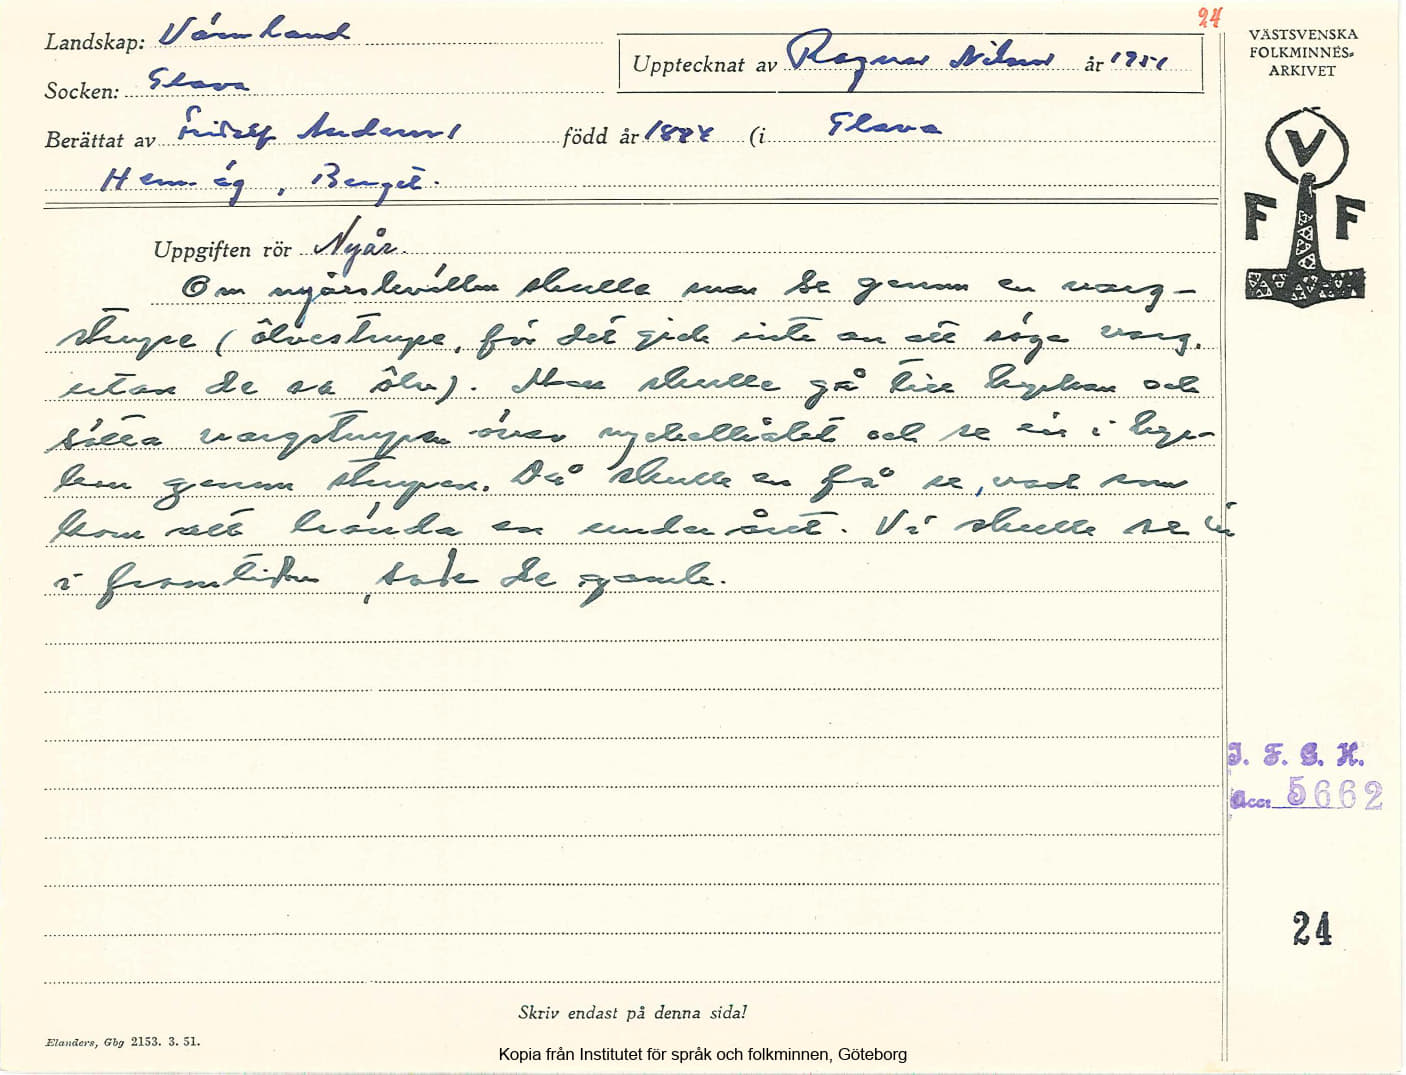 24
Landskap: Värmland
Upptecknat av Ragnar Nilsson år 1951
VÄSTSVENSKA
FOLKMINNES-
ARKIVET
Socken: Glava
Berättat av Fridolf Anderson född år 1884 (i Glava
Hem. äg, Berget.
V
F F
Uppgiften rör Nyår.
Om nyårskvällen skulle man se genom en varg-
strupe (ölvestrupe, för det gick inte an att säga varg,
utan de sa ölv). Man skulle gå till kyrkan och
sätta vargstrupen över nyckelhålet och se in i kyr-
kan genom strupen. Då skulle en få se, vad som
kom att hända en under året. Vi skulle se in
i framtiden, sade de gamle.
I. F. G. H.
Acc: 5662
24
Skriv endast på denna sida!
Elanders, Gbg 2153. 3. 51.
Kopia från Institutet för språk och folkminnen, Göteborg